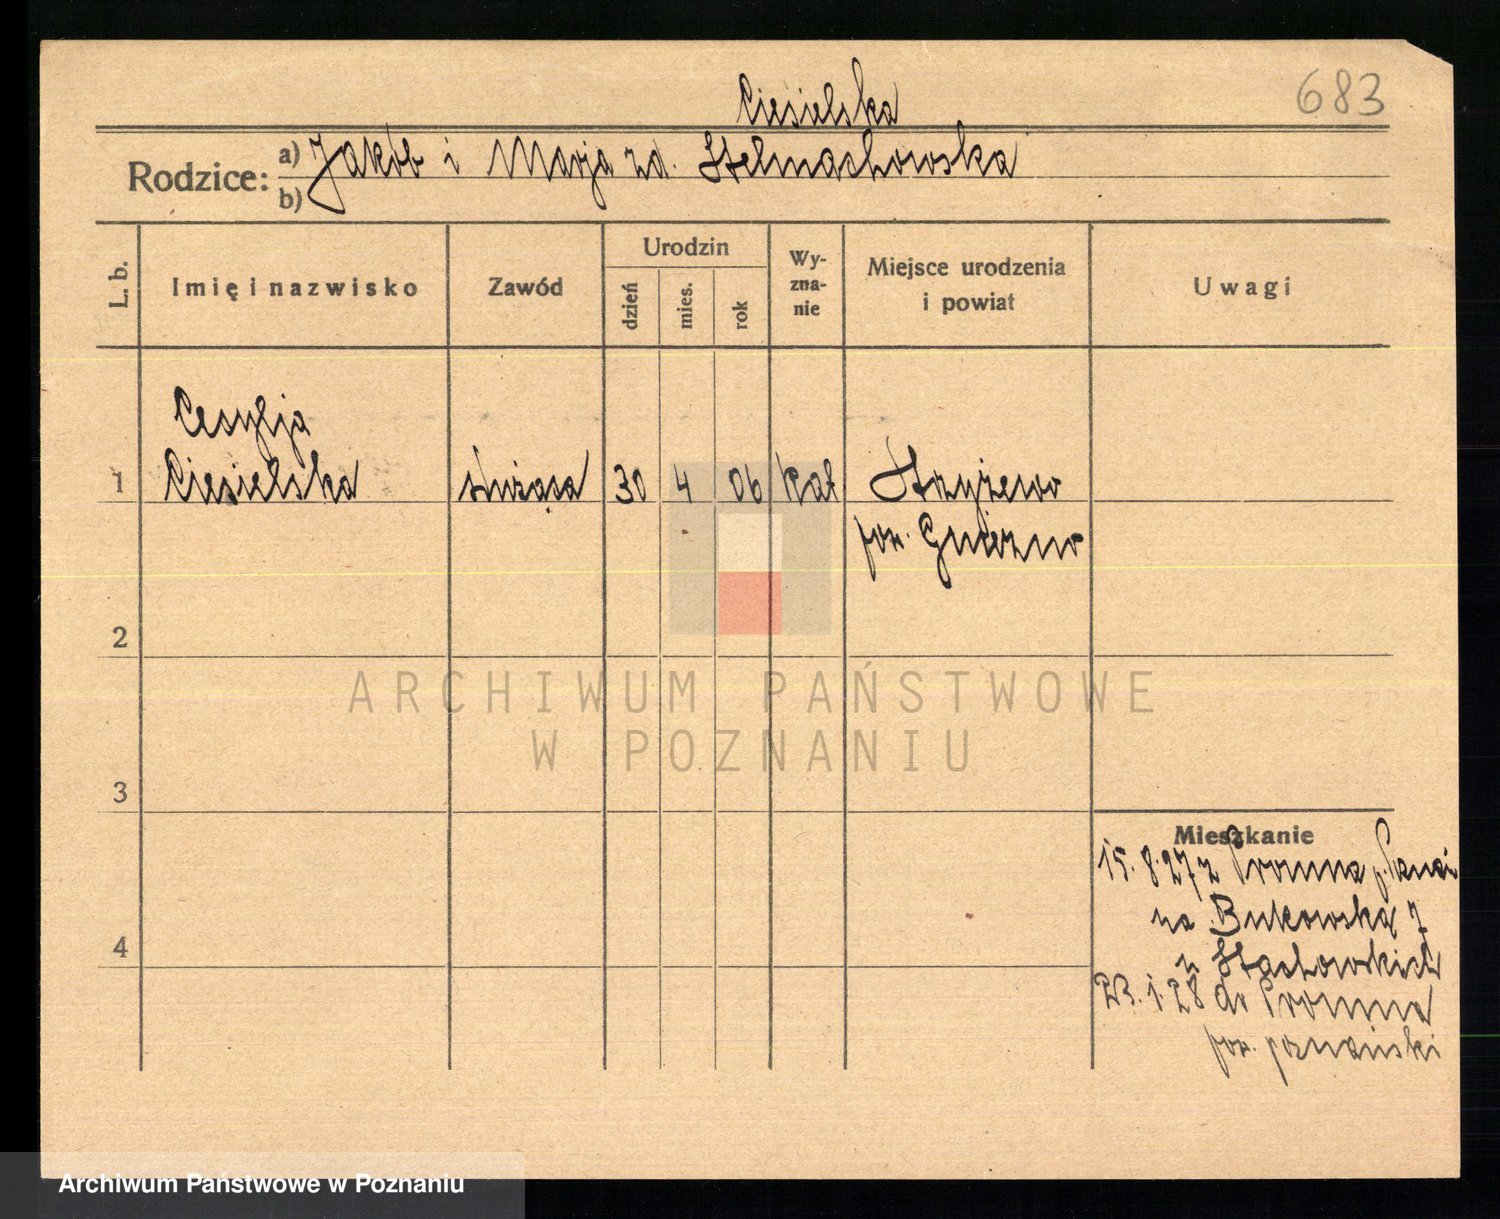 Ciesielska
683
Rodzice: a) Jakób i Marja zd. Stelmachowska
b)
L. b.
Imię i nazwisko
Zawód
Urodzin
dzień
mies.
rok
Wy-
zna-
nie
Miejsce urodzenia
i powiat
Uwagi
Cesylja
1 Ciesielska służąca 30 4 06 kat Strzyżewo
pow. Gniezno
2
ARCHIWUM PAŃSTWOWE
W POZNANIU
3
Mieszkanie
15.8.27 z Promna p.
na Bukowską 7
u Stachowskich
4
23.1.28 do Promna
pow. poznański
Archiwum Państwowe w Poznaniu